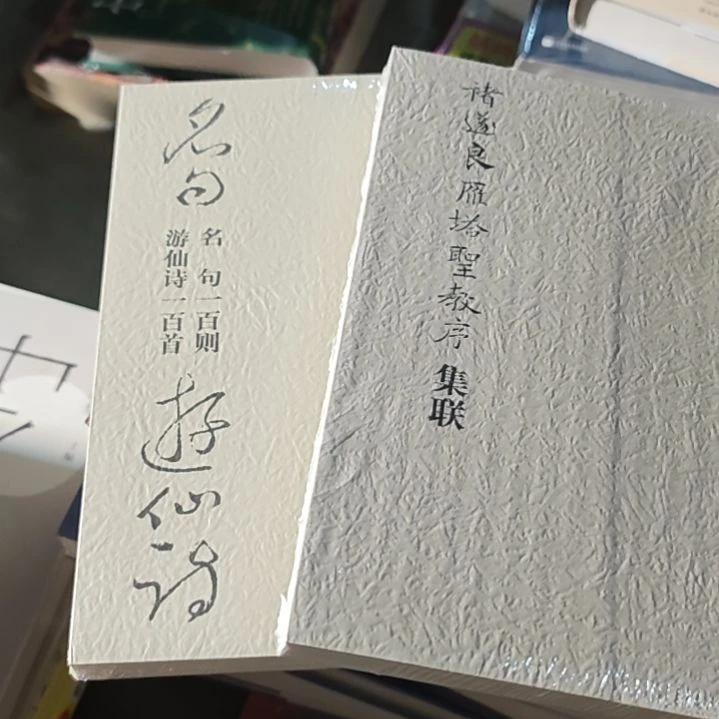 名句
名句一百则
游仙诗一百首
遊仙詩
褚遂良雁塔聖教序
集联